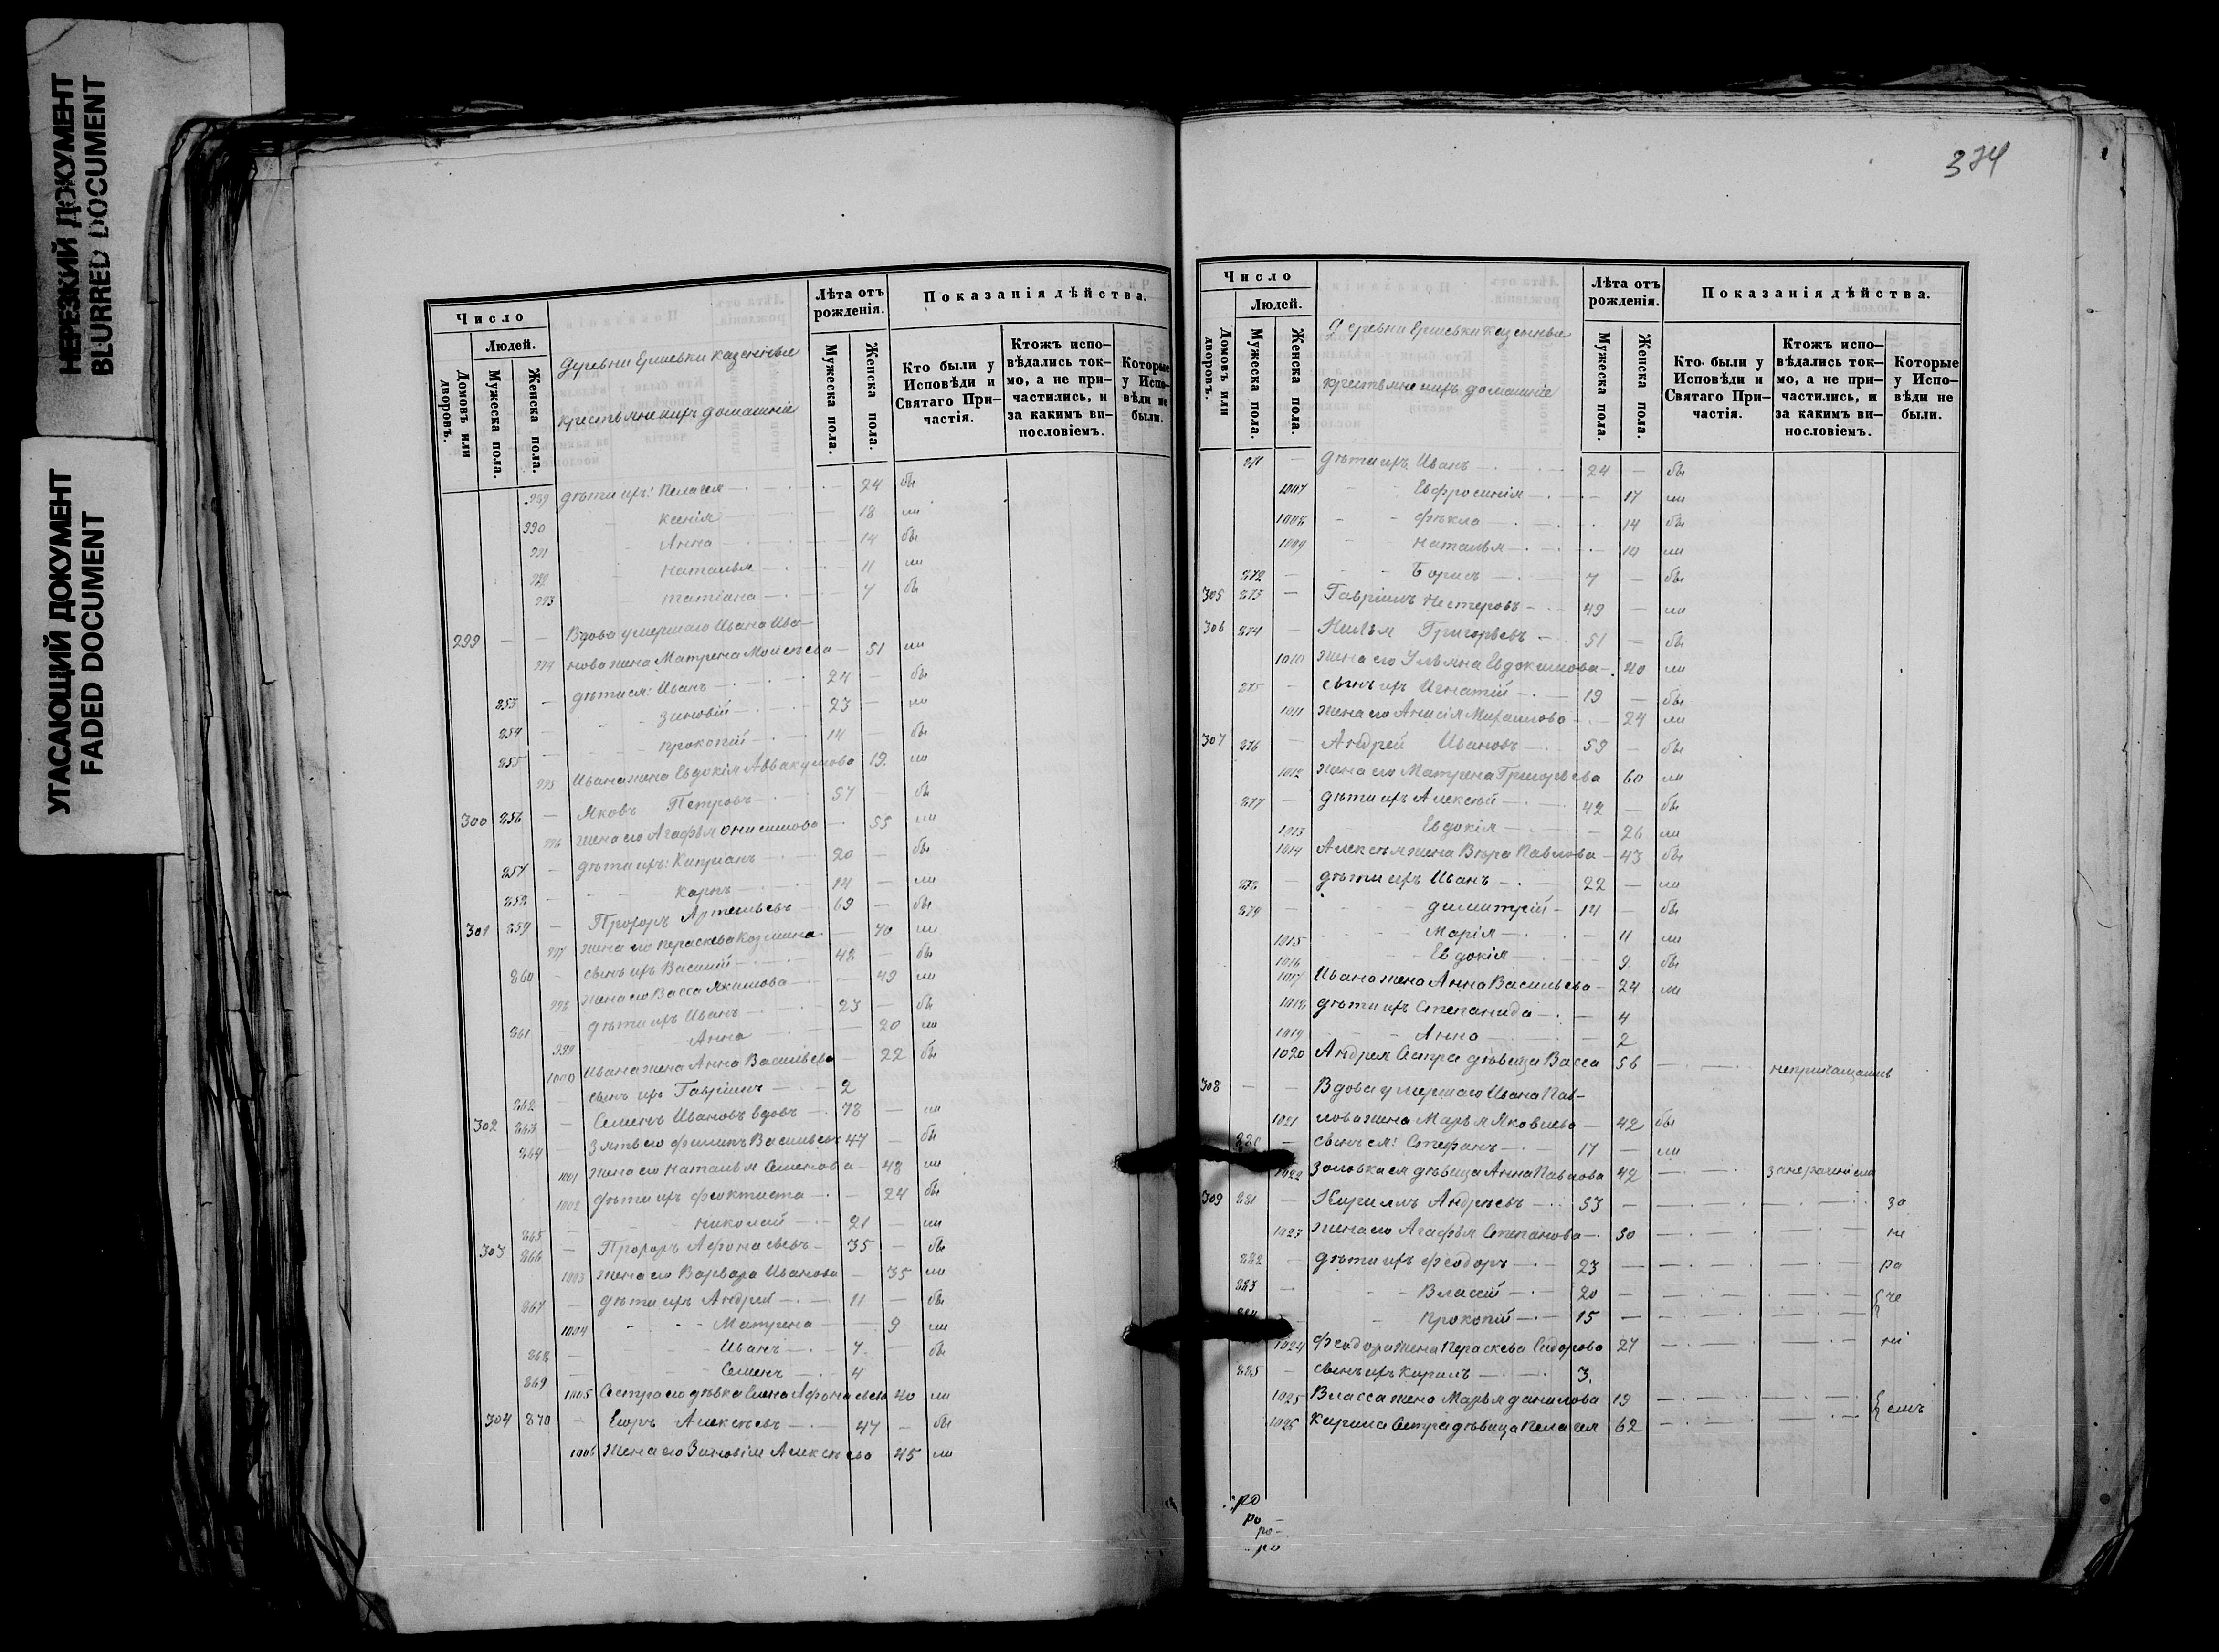 НЕРЕЗКИЙ ДОКУМЕНТ
BLURRED DOCUMENT
УГАСАЮЩИЙ ДОКУМЕНТ
FADED DOCUMENT
Число
Людей.
Домовъ или дворовъ.
Мужеска пола.
Женска пола.
Деревни Ершевки казенные
крестьяне ихъ домашніе
Лѣта отъ рожденія.
Мужеска пола.
Женска пола.
Показанія дѣйства.
Кто были у Исповѣди и Святаго При-частія.
Ктожъ испо-вѣдались ток-мо, а не при-частились, и за какимъ ви-нословіемъ.
Которые у Испо-вѣди не были.
989 дѣти ихъ: Пелагея 24 бы
990 Ксенія 18 ли
991 Анна 14 бы
992 Наталья 11 ли
993 Татіана 7 бы
299 — — Вдова умершаго Ивана Ива-
994 нова жена Матрена Моисѣева 51 ли
853 — дѣти ея: Иванъ 24 — бы
854 — Зиновій 23 — ли
855 — Прокопій 14 — бы
995 Ивана жена Евдокія Аввакумова 19 ли
300 856 — Яковъ Петровъ 57 — бы
996 жена его Агафья Онисимова 55 ли
857 — дѣти ихъ: Кипріанъ 20 — бы
858 — Карпъ 14 — ли
301 859 — Прохоръ Артемьевъ 69 — бы
997 жена его Параскева Козмина — 70 ли
860 — сынъ ихъ Василій 48 — бы
998 жена его Васса Якимова — 49 ли
861 — дѣти ихъ Иванъ 23 — бы
999 Анна — 20 ли
1000 Ивана жена Анна Васильева — 22 бы
862 — сынъ ихъ Гавріилъ 2
302 863 — Семенъ Ивановъ вдовъ 78 — ли
864 зять его Филипъ Васильевъ 47 — бы
1001 жена его Наталья Семенова 48 ли
1002 дѣти ихъ Феоктиста — 24 бы
865 — Николай 21 — ли
303 866 — Прохоръ Афонасьевъ 35 — бы
1003 жена его Варвара Иванова — 35 ли
867 — дѣти ихъ Андрей 11 — бы
1004 Матрена 9 ли
868 — Иванъ 7 — бы
869 Семенъ 4
1005 Сестра его дѣвка Елена Афонасьева 40 ли
304 870 — Егоръ Алексѣевъ 47 — бы
1006 Жена его Зиновія Алексѣева 45 ли
374
Число
Людей.
Домовъ или дворовъ.
Мужеска пола.
Женска пола.
Деревни Ершевки казенные
крестьяне ихъ домашніе
Лѣта отъ рожденія.
Мужеска пола.
Женска пола.
Показанія дѣйства.
Кто были у Исповѣди и Святаго При-частія.
Ктожъ испо-вѣдались ток-мо, а не при-частились, и за какимъ ви-нословіемъ.
Которые у Испо-вѣди не были.
871 — дѣти ихъ Иванъ 24 — бы
1007 Евфросинія 17 ли
1008 Фекла 14 бы
1009 Наталья 10 ли
872 — Борисъ 7 — бы
305 873 — Гавріилъ Нестеровъ 49 — ли
306 874 — Илья Григорьевъ 51 — бы
1010 жена его Ульяна Евдокимова 40 ли
875 — сынъ ихъ Игнатій 19 — бы
1011 жена его Анисія Михаилова 24 ли
307 876 — Андрей Ивановъ 59 — бы
1012 жена его Матрена Григорьева 60 ли
877 — дѣти ихъ Алексѣй 42 — бы
1013 Евдокія 26 ли
1014 Алексѣя жена Вѣра Павлова 43 бы
878 — дѣти ихъ Иванъ 22 — ли
879 — Димитрій 14 — бы
1015 Марія 11 ли
1016 Евдокія 9 бы
1017 Ивана жена Анна Васильева 24 ли
1018 дѣти ихъ Степанида 4
1019 Анна 2
1020 Андрея Сестра дѣвица Васса 56 непричащалась
308 — — Вдова умершаго Ивана Пав-
1021 лова жена Марья Яковлева 42 бы
880 — сынъ ея: Стефанъ 17 — ли
1022 Золовка ея дѣвица Анна Павлова 42
309 881 — Кирилъ Андреевъ 53 за
1023 жена его Агафья Степанова 50 не
882 — дѣти ихъ Феодоръ 23 ра
883 — Власій 20 че
884 — Прокопій 15
1024 Феодора жена Параскева Сидорова 27 ні
885 — сынъ ихъ Кирилъ 3
1025 Власса жена Марья Данилова 19 емъ
1026 Кирила Сестра дѣвица Пелагея 62
ро
ро
ро
ро